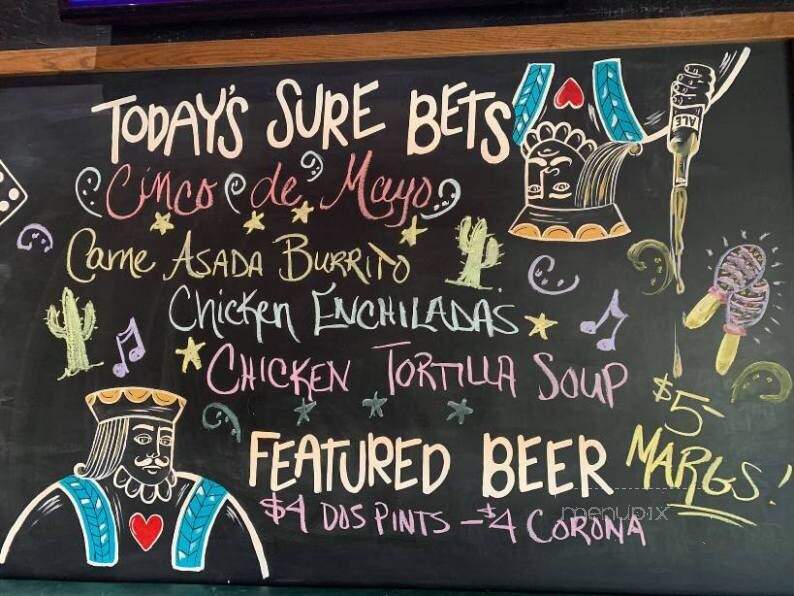 TODAY'S SURE BETS
Cinco de Mayo
Carne ASADA BURRITO
Chicken ENCHILADAS
CHICKEN TORTILLA SOUP
$5-
MARGS!
FEATURED BEER
$4 DOS PINTS - $4 CORONA
ALE
menupix